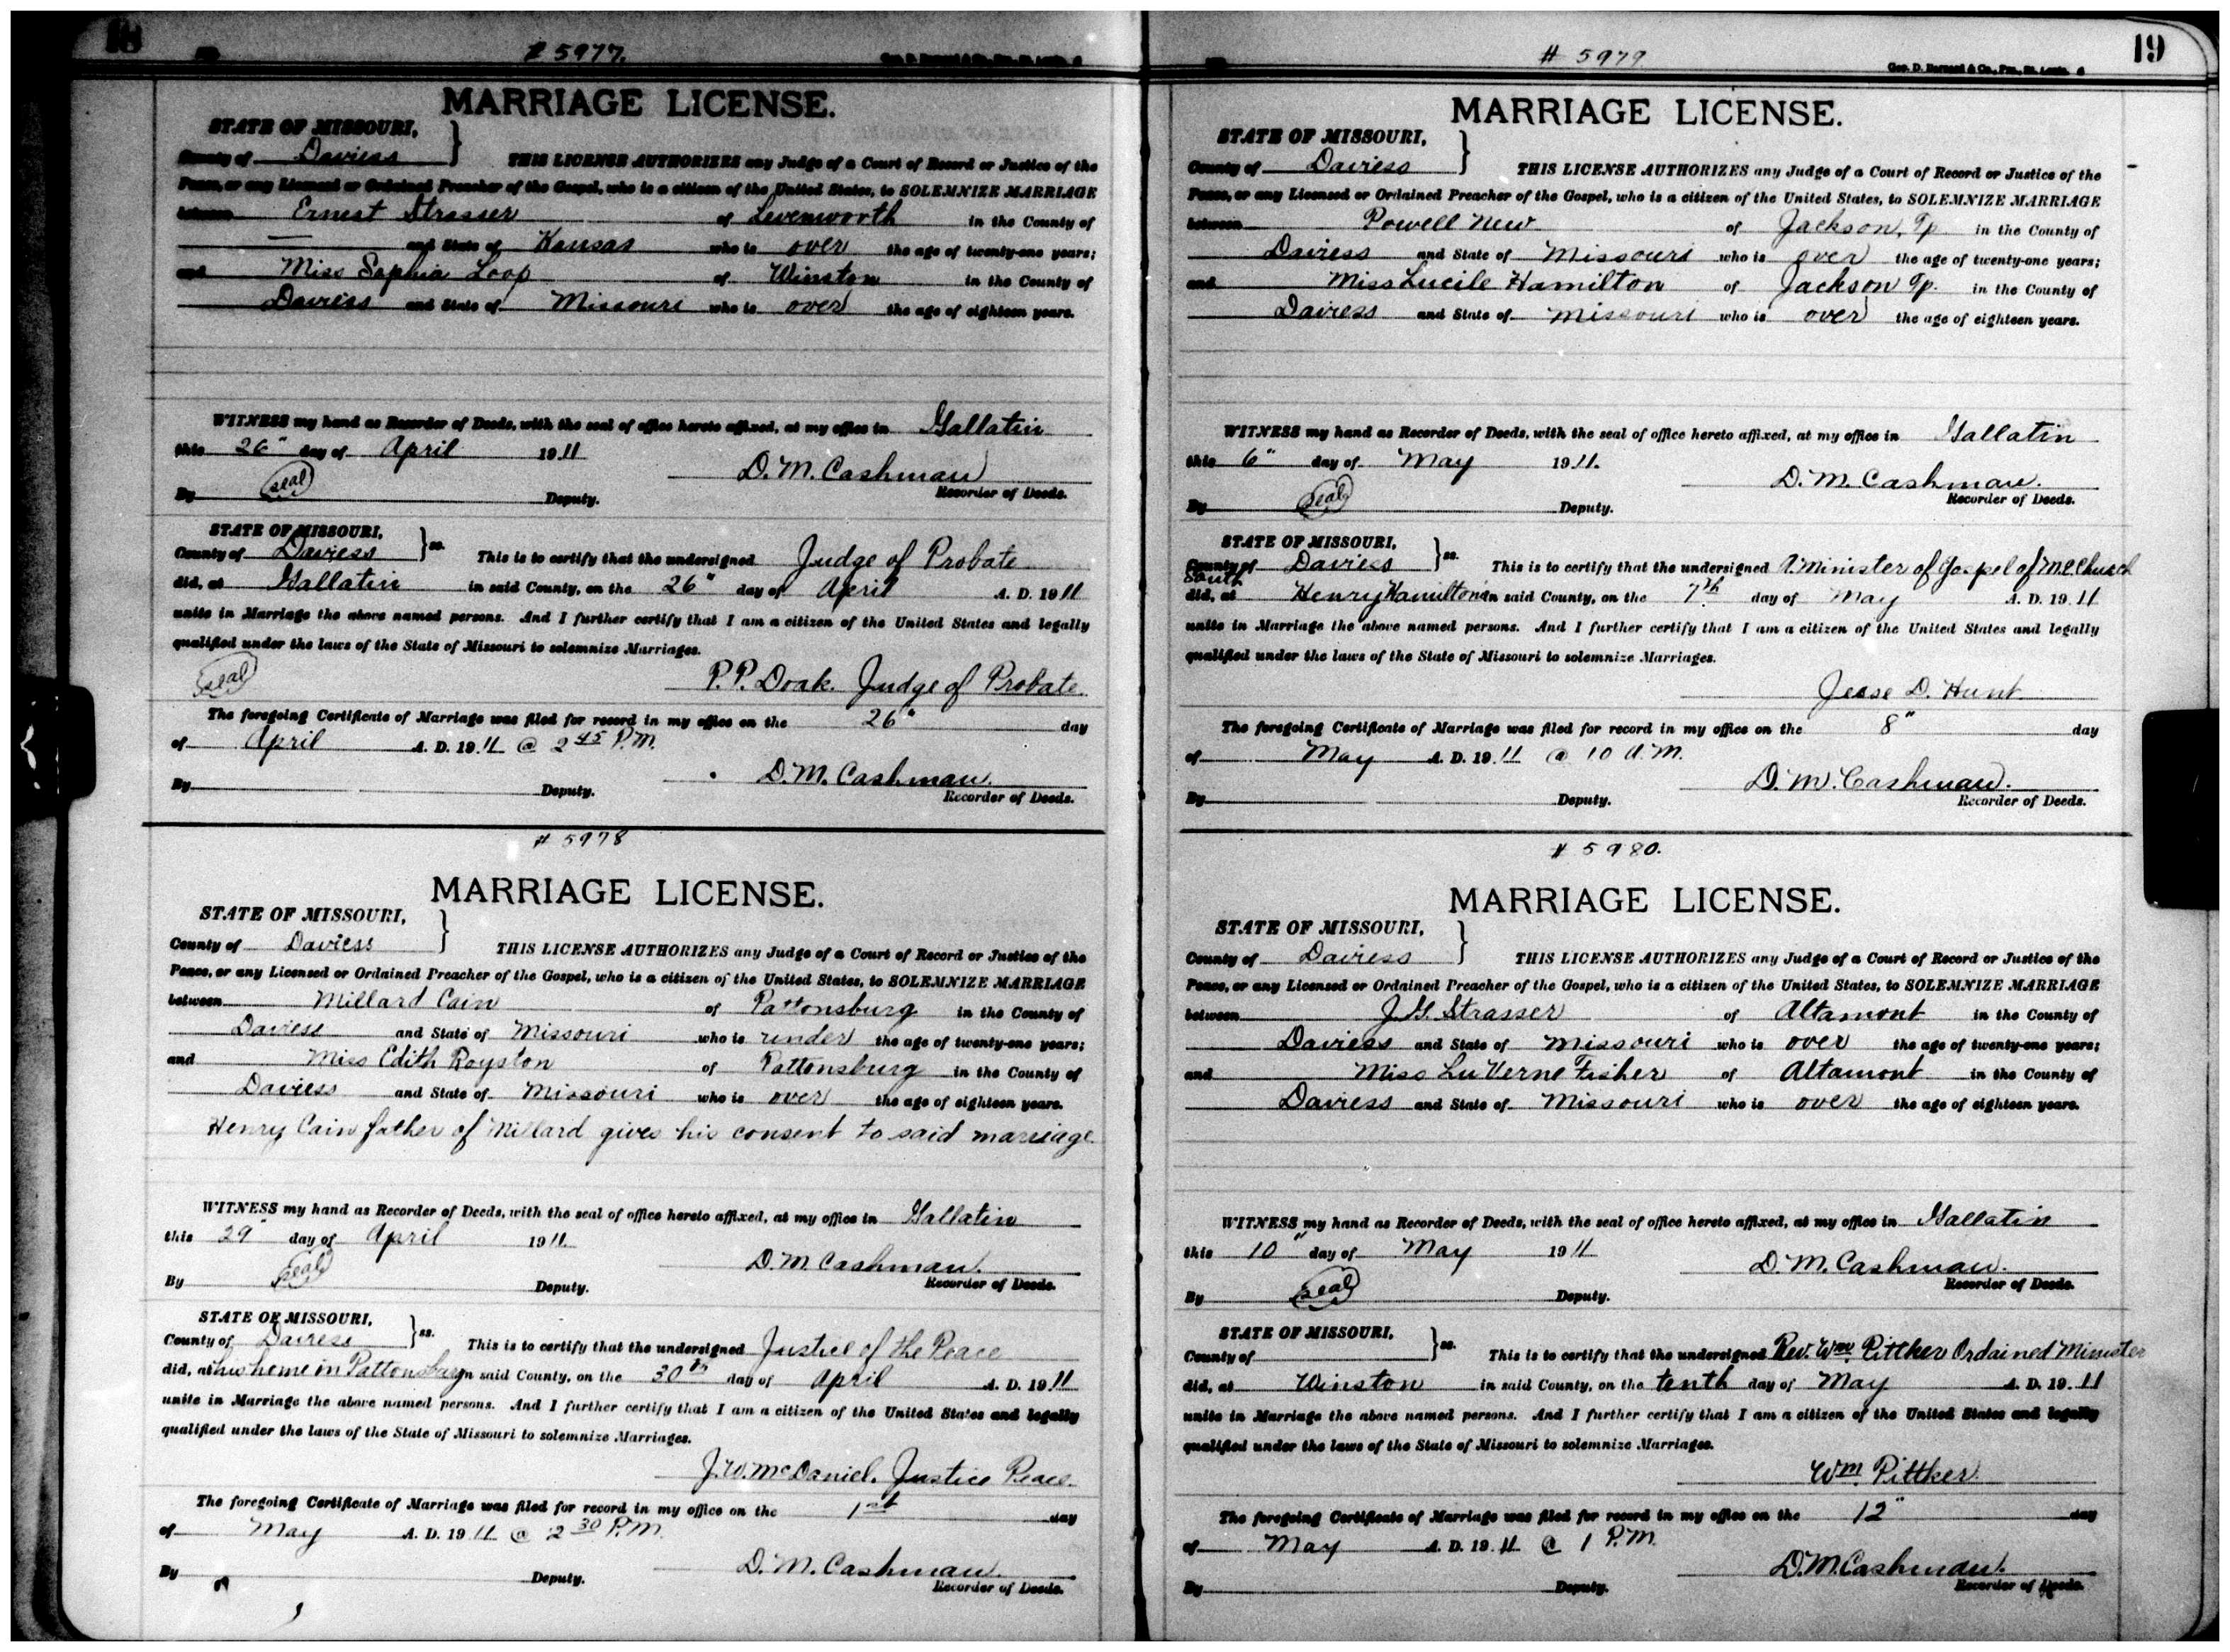 18
# 5977.
Geo. D. Barnard & Co., Prs., St. Louis. 6
MARRIAGE LICENSE.
STATE OF MISSOURI,
County of Daviess } THIS LICENSE AUTHORIZES any Judge of a Court of Record or Justice of the
Peace, or any Licensed or Ordained Preacher of the Gospel, who is a citizen of the United States, to SOLEMNIZE MARRIAGE
between Ernest Strasser of Levenworth in the County of
— and State of Kansas who is over the age of twenty-one years;
and Miss Sophia Loop of Winston in the County of
Daviess and State of Missouri who is over the age of eighteen years.
WITNESS my hand as Recorder of Deeds, with the seal of office hereto affixed, at my office in Gallatin
this 26" day of April 1911
D. M. Cashman
By (seal) Deputy. Recorder of Deeds.
STATE OF MISSOURI,
County of Daviess } ss. This is to certify that the undersigned Judge of Probate
did, at Gallatin in said County, on the 26" day of April A. D. 1911
unite in Marriage the above named persons. And I further certify that I am a citizen of the United States and legally
qualified under the laws of the State of Missouri to solemnize Marriages.
(seal) P. P. Doak. Judge of Probate
The foregoing Certificate of Marriage was filed for record in my office on the 26" day
of April A. D. 1911 @ 2 45 P.M.
D. M. Cashman.
By Deputy. Recorder of Deeds.
# 5978
MARRIAGE LICENSE.
STATE OF MISSOURI,
County of Daviess } THIS LICENSE AUTHORIZES any Judge of a Court of Record or Justice of the
Peace, or any Licensed or Ordained Preacher of the Gospel, who is a citizen of the United States, to SOLEMNIZE MARRIAGE
between Millard Cain of Pattonsburg in the County of
Daviess and State of Missouri who is under the age of twenty-one years;
and Miss Edith Royston of Pattonsburg in the County of
Daviess and State of Missouri who is over the age of eighteen years.
Henry Cain father of Millard gives his consent to said marriage
WITNESS my hand as Recorder of Deeds, with the seal of office hereto affixed, at my office in Gallatin
this 29" day of April 1911.
D. M. Cashman.
By (seal) Deputy. Recorder of Deeds.
STATE OF MISSOURI,
County of Daviess } ss. This is to certify that the undersigned Justice of the Peace
did, at his home in Pattonsburg in said County, on the 30th day of April A. D. 1911
unite in Marriage the above named persons. And I further certify that I am a citizen of the United States and legally
qualified under the laws of the State of Missouri to solemnize Marriages.
J. W. McDaniel. Justice Peace.
The foregoing Certificate of Marriage was filed for record in my office on the 1st day
of May A. D. 1911 @ 2 30 P.M.
D. M. Cashman.
By Deputy. Recorder of Deeds.
19
# 5979
Geo. D. Barnard & Co., Prs., St. Louis. 6
MARRIAGE LICENSE.
STATE OF MISSOURI,
County of Daviess } THIS LICENSE AUTHORIZES any Judge of a Court of Record or Justice of the
Peace, or any Licensed or Ordained Preacher of the Gospel, who is a citizen of the United States, to SOLEMNIZE MARRIAGE
between Powell New of Jackson, Tp in the County of
Daviess and State of Missouri who is over the age of twenty-one years;
and Miss Lucile Hamilton of Jackson Tp. in the County of
Daviess and State of Missouri who is over the age of eighteen years.
WITNESS my hand as Recorder of Deeds, with the seal of office hereto affixed, at my office in Gallatin
this 6" day of May 1911.
D. M. Cashman.
By (seal) Deputy. Recorder of Deeds.
STATE OF MISSOURI,
County of Daviess } ss. This is to certify that the undersigned A. Minister of Gospel of M.E. Church
South
did, at Henry Hamilton's in said County, on the 7th day of May A. D. 1911
unite in Marriage the above named persons. And I further certify that I am a citizen of the United States and legally
qualified under the laws of the State of Missouri to solemnize Marriages.
Jesse D. Hunt
The foregoing Certificate of Marriage was filed for record in my office on the 8" day
of May A. D. 1911 @ 10 A.M.
D. M. Cashman.
By Deputy. Recorder of Deeds.
# 5980.
MARRIAGE LICENSE.
STATE OF MISSOURI,
County of Daviess } THIS LICENSE AUTHORIZES any Judge of a Court of Record or Justice of the
Peace, or any Licensed or Ordained Preacher of the Gospel, who is a citizen of the United States, to SOLEMNIZE MARRIAGE
between J. G. Strasser of Altamont in the County of
Daviess and State of Missouri who is over the age of twenty-one years;
and Miss LuVerne Fisher of Altamont in the County of
Daviess and State of Missouri who is over the age of eighteen years.
WITNESS my hand as Recorder of Deeds, with the seal of office hereto affixed, at my office in Gallatin
this 10" day of May 1911
D. M. Cashman.
By (seal) Deputy. Recorder of Deeds.
STATE OF MISSOURI,
County of } ss. This is to certify that the undersigned Rev. Wm. Pittker Ordained Minister
did, at Winston in said County, on the tenth day of May A. D. 1911
unite in Marriage the above named persons. And I further certify that I am a citizen of the United States and legally
qualified under the laws of the State of Missouri to solemnize Marriages.
Wm. Pittker
The foregoing Certificate of Marriage was filed for record in my office on the 12" day
of May A. D. 1911 @ 1 P.M.
D. M. Cashman.
By Deputy. Recorder of Deeds.